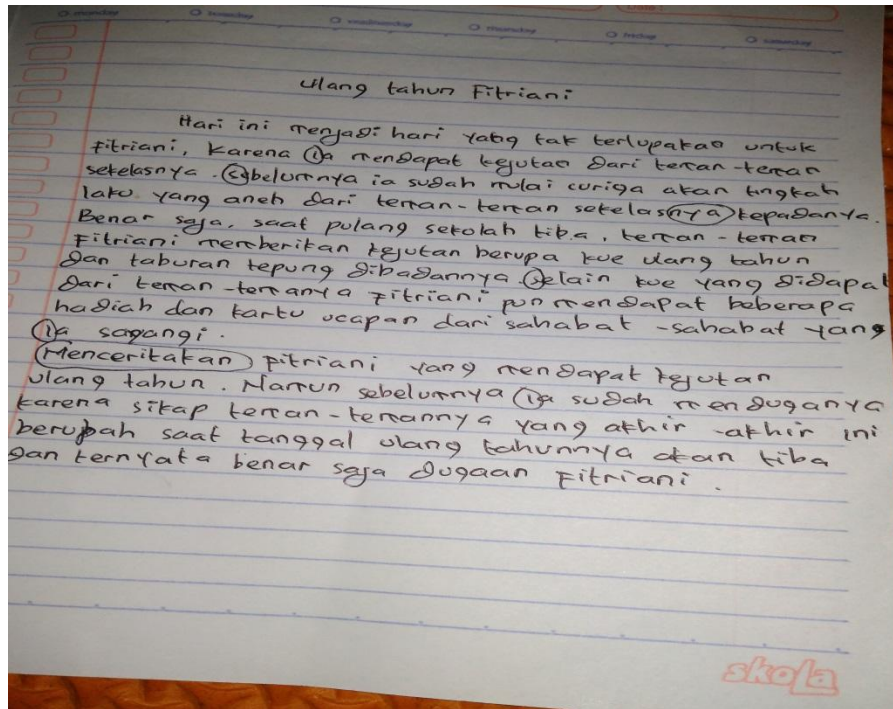 monday
wednesday
thursday
friday
saturday
Ulang tahun Fitriani
Hari ini menjadi hari yabg tak terlupakan untuk
Fitriani, karena ia mendapat kejutan dari teman-teman
sekelasnya. Sebelumnya ia sudah mulai curiga akan tingkah
laku yang aneh dari teman-teman sekelasnya kepadanya.
Benar saja, saat pulang sekolah tiba, teman-teman
Fitriani memberikan kejutan berupa kue ulang tahun
dan taburan tepung dibadannya. Selain kue yang didapat
dari teman-temanya Fitriani pun mendapat beberapa
hadiah dan kartu ucapan dari sahabat-sahabat yang
ia sayangi.
Menceritakan Fitriani yang mendapat kejutan
ulang tahun. Namun sebelumnya ia sudah menduganya
karena sikap teman-temannya yang akhir-akhir ini
berubah saat tanggal ulang tahunnya akan tiba
dan ternyata benar saja dugaan Fitriani.
skola